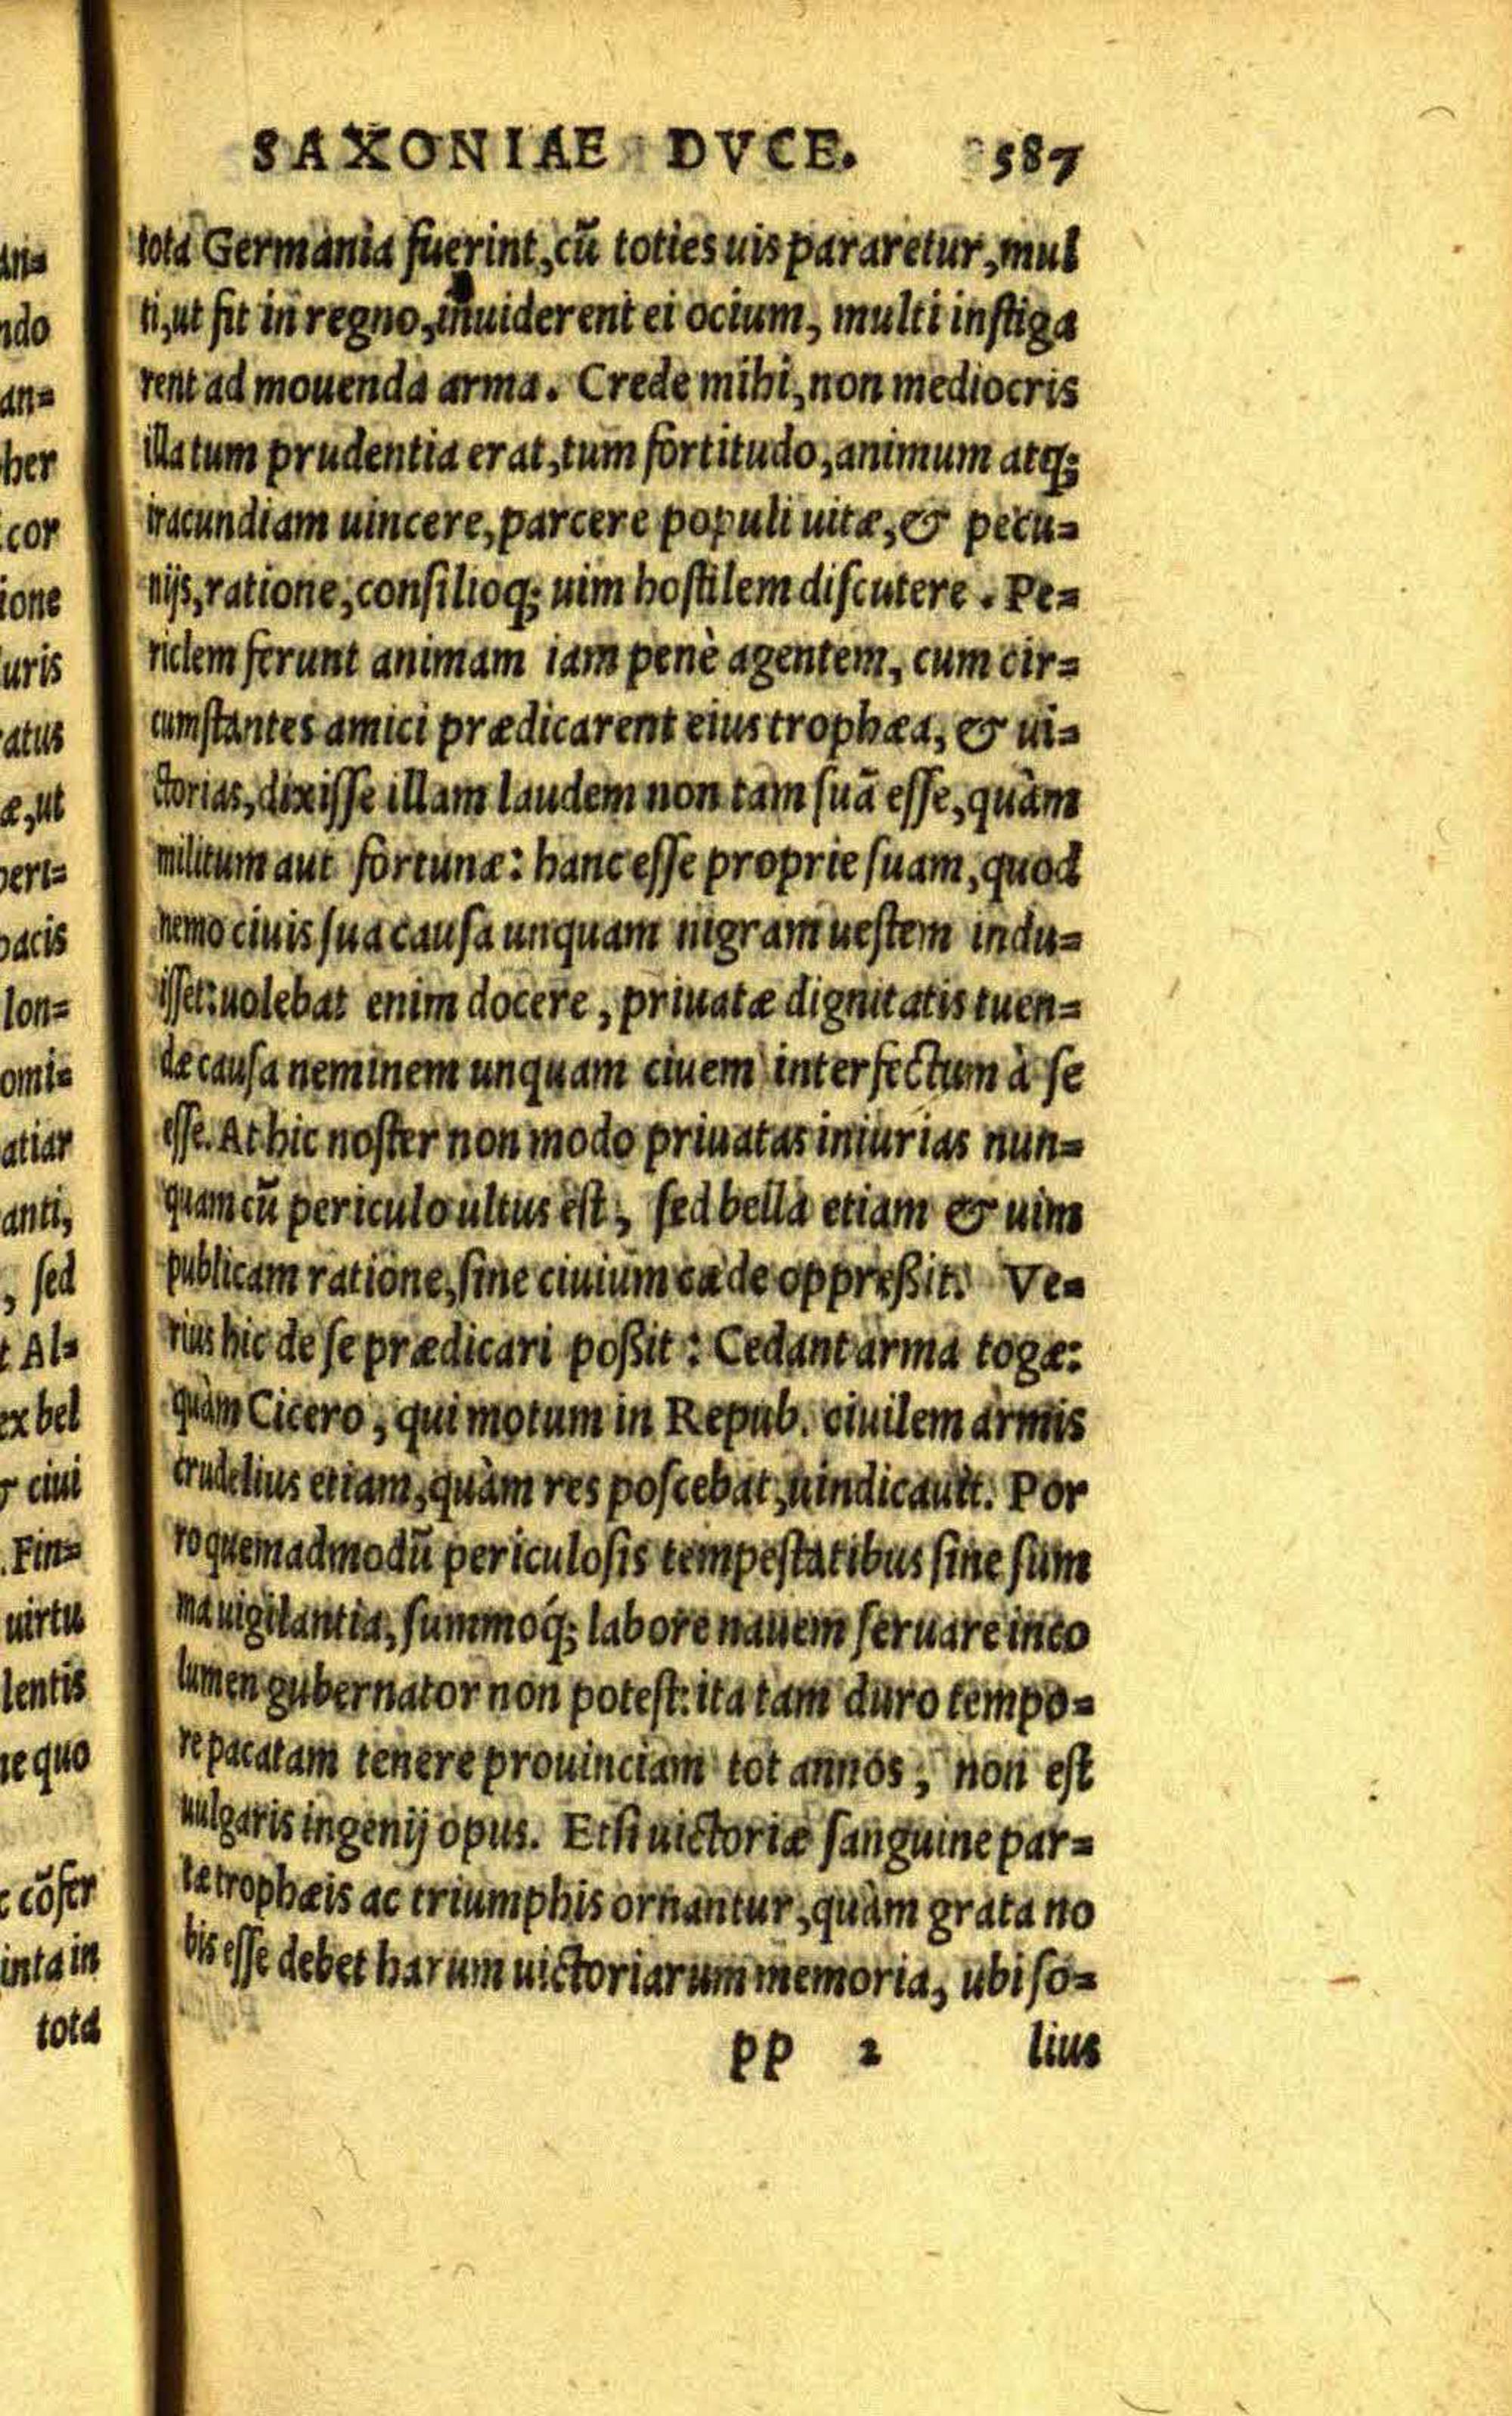 SAXONIAE DVCE. 587
tota Germania fuerint, cũ toties uis pararetur, mul
ti, ut fit in regno, inuiderent ei ocium, multi instiga
rent ad mouenda arma. Crede mihi, non mediocris
illa tum prudentia erat, tum fortitudo, animum atq;
iracundiam uincere, parcere populi uitæ, & pecu=
nijs, ratione, consilioq; uim hostilem discutere. Pe=
riclem ferunt animam iam penè agentem, cum cir=
cumstantes amici prædicarent eius trophæa, & ui=
ctorias, dixisse illam laudem non tam suã esse, quàm
militum aut fortunæ: hanc esse proprie suam, quod
nemo ciuis sua causa unquam nigram uestem indu=
isset: uolebat enim docere, priuatæ dignitatis tuen=
dæ causa neminem unquam ciuem interfectum à se
esse. At hic noster non modo priuatas iniurias nun=
quam cũ periculo ultus est, sed bella etiam & uim
publicam ratione, sine ciuium cæde oppreßit. Ve=
rius hic de se prædicari poßit: Cedant arma togæ:
quàm Cicero, qui motum in Repub. ciuilem armis
crudelius etiam, quàm res poscebat, uindicauit. Por
ro quemadmodũ periculosis tempestatibus sine sum
ma uigilantia, summoq́; labore nauem seruare inco
lumen gubernator non potest: ita tam duro tempo=
re pacatam tenere prouinciam tot annos, non est
uulgaris ingenij opus. Etsi uictoriæ sanguine par=
tæ trophæis ac triumphis ornantur, quàm grata no
bis esse debet harum uictoriarum memoria, ubi so=
pp 2 lius
an=
ndo
an=
her
cor
ione
uris
atus
æ, ut
peri=
pacis
lon=
omi=
atiar
anti,
, sed
t Al=
ex bel
ciui
. Fin=
uirtu
lentis
ne quo
cõfer
inta in
tota